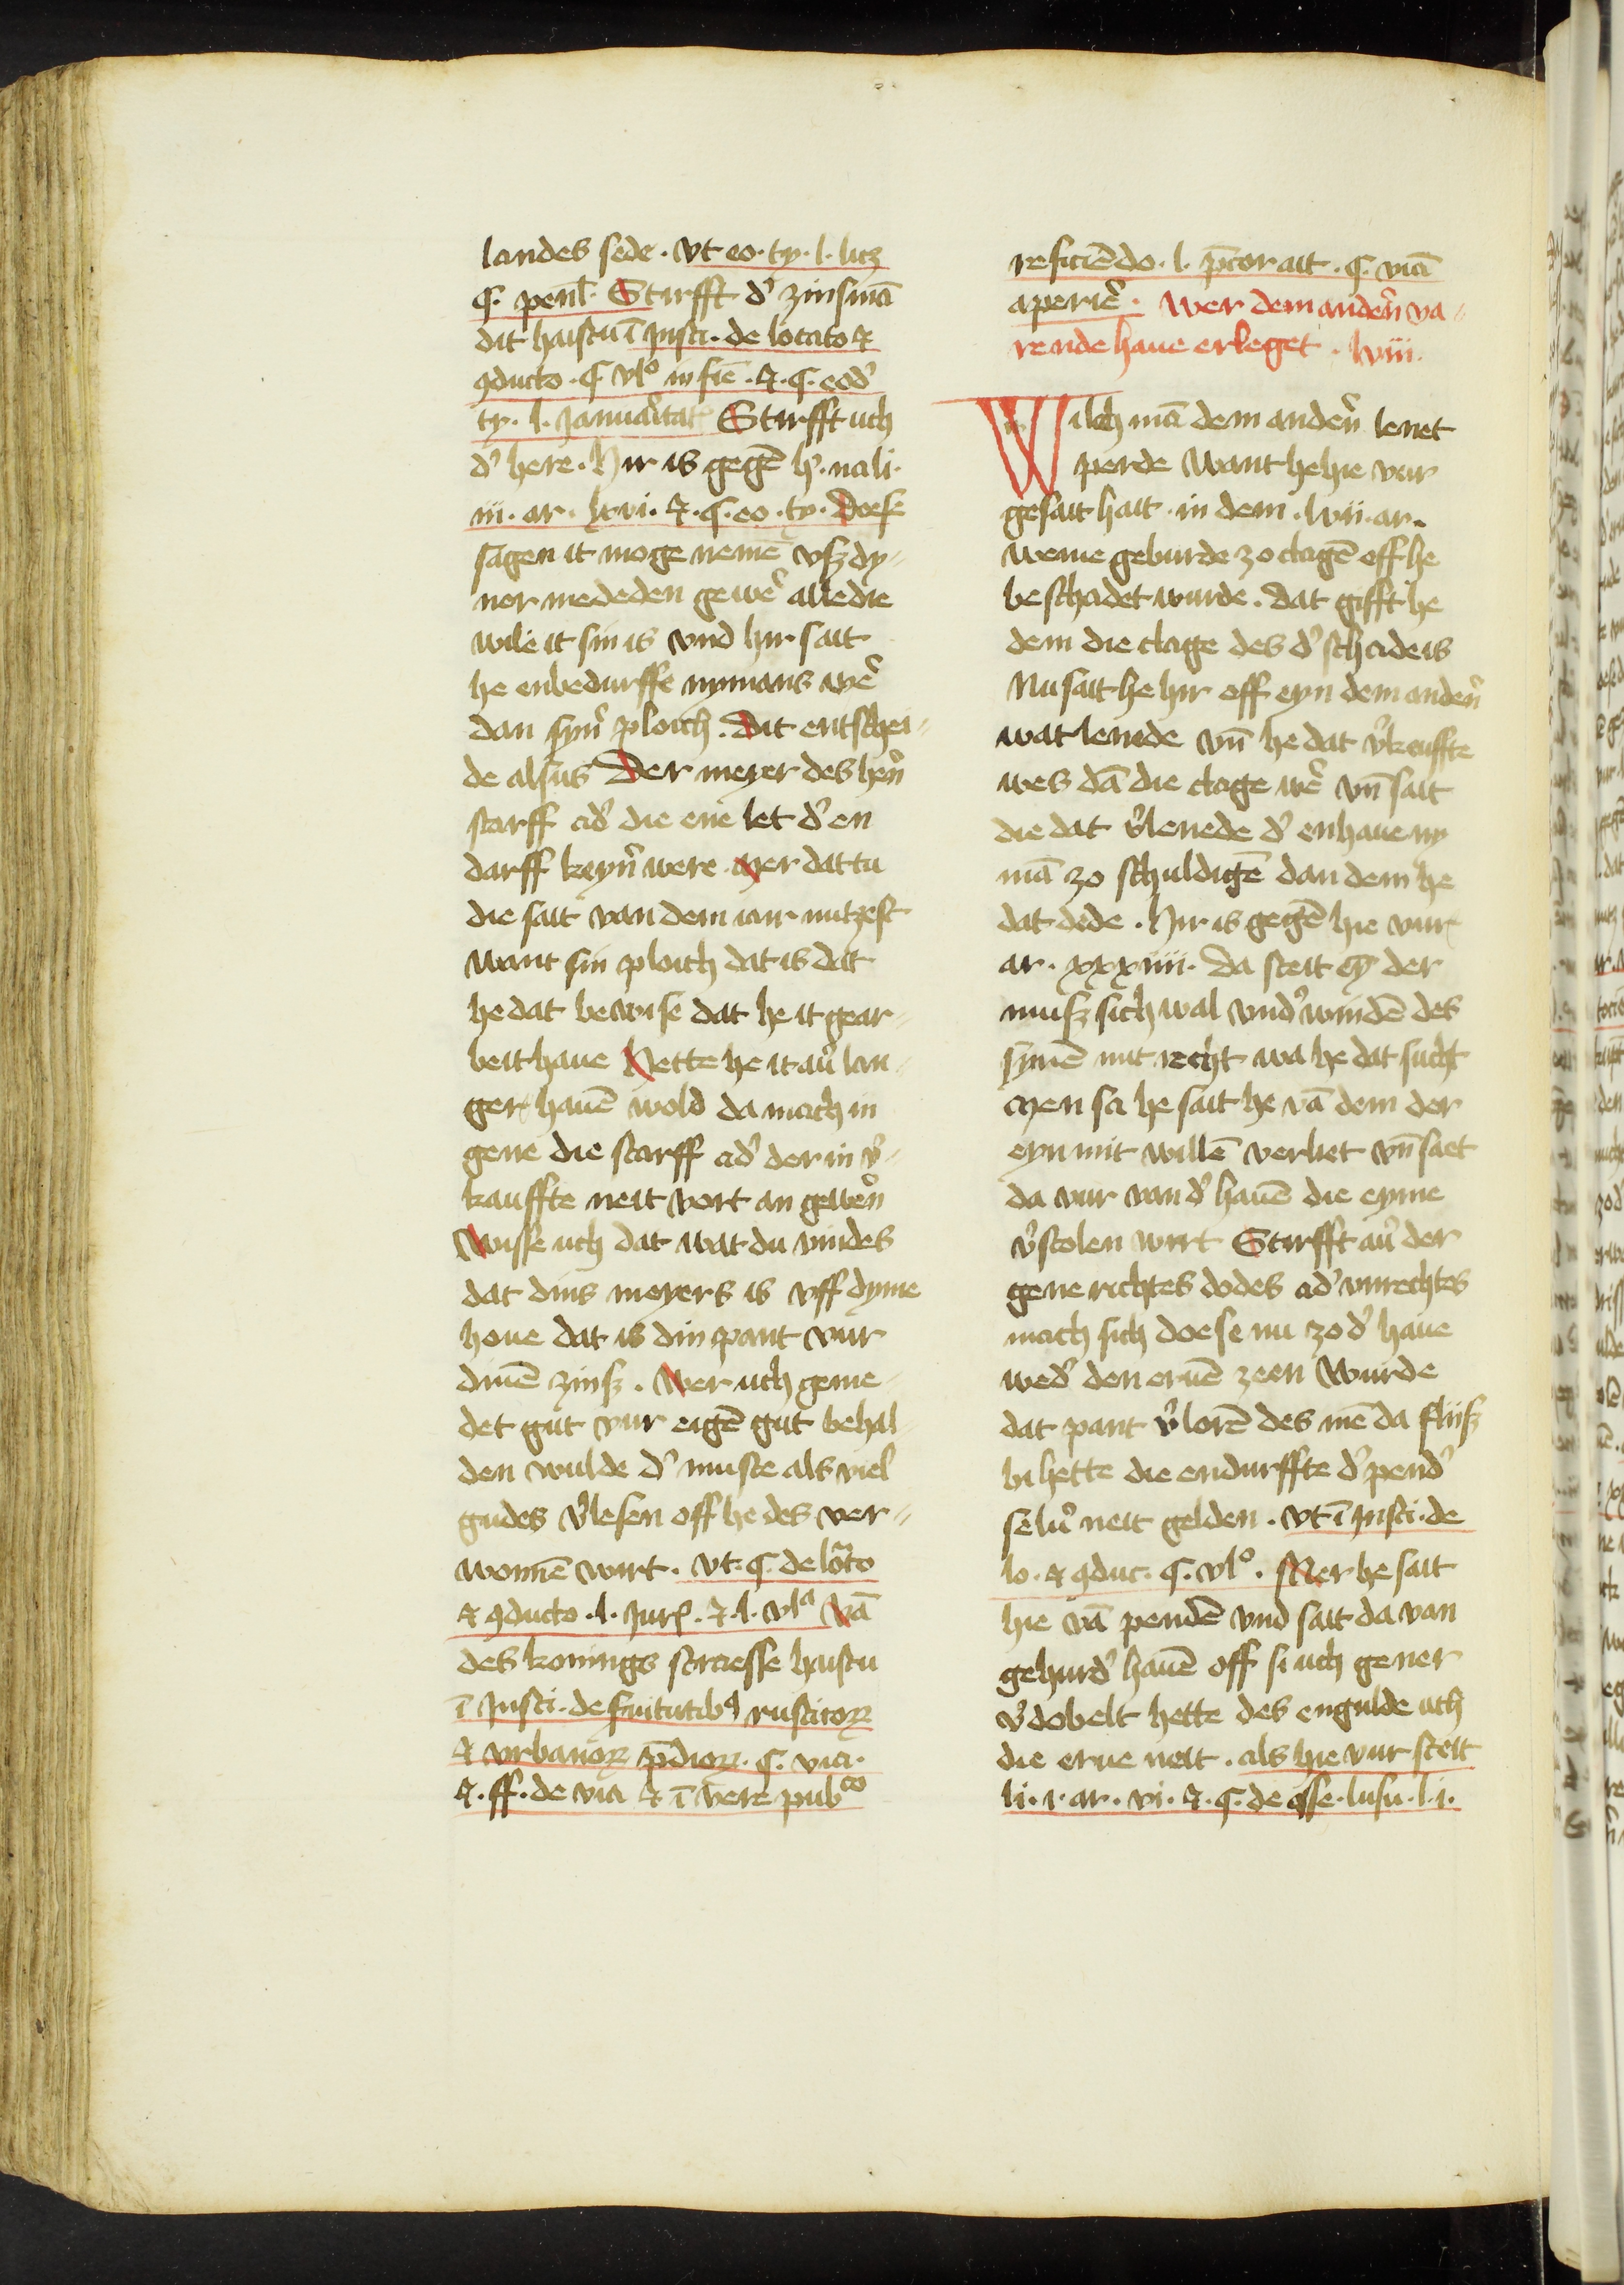 landes sede · vt eo · ty · l · licz
ꝯ · penl̄ · Stirfft d' zinsmā
dit haistu ī Insti · de locato ⁊
ꝯducto · § vlº in fiē · ⁊ · C · eod'
ty · l · Januaritat Stirfft uch
d' here · Hir is gegē h' · na li ·
iii · ar · lxxvi · ⁊ · C · eo · ty · Doese
sagen it moge nemē vsz dy-
ner mededen gewē alle die
wile it sin is vnd hir sait
he enbedurffe nymans wē
dan syn̄ ploich · Dit entschei-
de alsus Der meyer des hēn
starff ad' die ene let d' en
darff keyn̄ were · Mer dattu
die sait van dem iair nutzest
want sin ploich dat is dat
he dat bewise dat he it gear-
beit haue Hette he it au' lan-
ger hauē wold da mach in
gene die starff ad' der in v'-
kauffte neit vort an gewen̄
Wisse uch dat wat du vindes
dat dins meyers is vff dyme
houe dat is din pant vur
dinē zinsz · Wer uch geme-
det gut vur eigē gut behal-
den wulde d' muste als viel
gudes v'lesen off he des ver-
wonnē wirt · vt · C · de locato
⁊ ꝯducto · l · Jur · ⁊ · l · vlª Vā
des konings straesse haistu
ī Insti · de suitutibꝰ rusticoꝝ
⁊ vrbanoꝝ p̄dioꝝ · § · via ·
⁊ · ff · de via ⁊ ī itere pubco
reficiēdo · l · p̄tor ait · § · viā
aperiē · Wer dem anden̄ va-
rende haue erleget · lviii ·
Wilch mā dem anden̄ lenet
perde want he hie vur
gesait hait · in dem · lvii · ar ·
weme geburde zo clagē off he
beschadet wurde · dat gifft he
dem die clage des d' schade is
Nu sait he hir off eyn dem anden̄
wat lenede vn̄ he dat v'kauffte
wes dā die clage wē vn̄ sait
die dat v'lenede d' enhaue ny
mā zo schuldigē dan dem he
dat dede · Hir is gegē hie vur
ar · xxxiiii · da steit ey der
musz sich wal vnd'windē des
synē mit recht wa he dat sucht
Men sa he sait he vā dem der
eyn mit willē verliet vn̄ saet
da vur van d' hauē die eyme
v'stolen wirt Stirfft au' der
gene richtes dodes ad' vnrechtes
mach sich doese nu zo d' haue
wed' den eruē zeen Wurde
dat pant v'lorē des mē da flijsz
bi hette die endurffte d' pend'
selu' neit gelden · vt ī Insti · de
lo · ⁊ ꝯduc · § · vlº · Mer he sait
hie vā pendē vnd sait da van
gehurd' hauē off si uch gener
v'dobelt hette des engulde uch
die erue neit · als hie vur steit
li · i · ar · vi · ⁊ · C · de asse · lusu · l · i ·